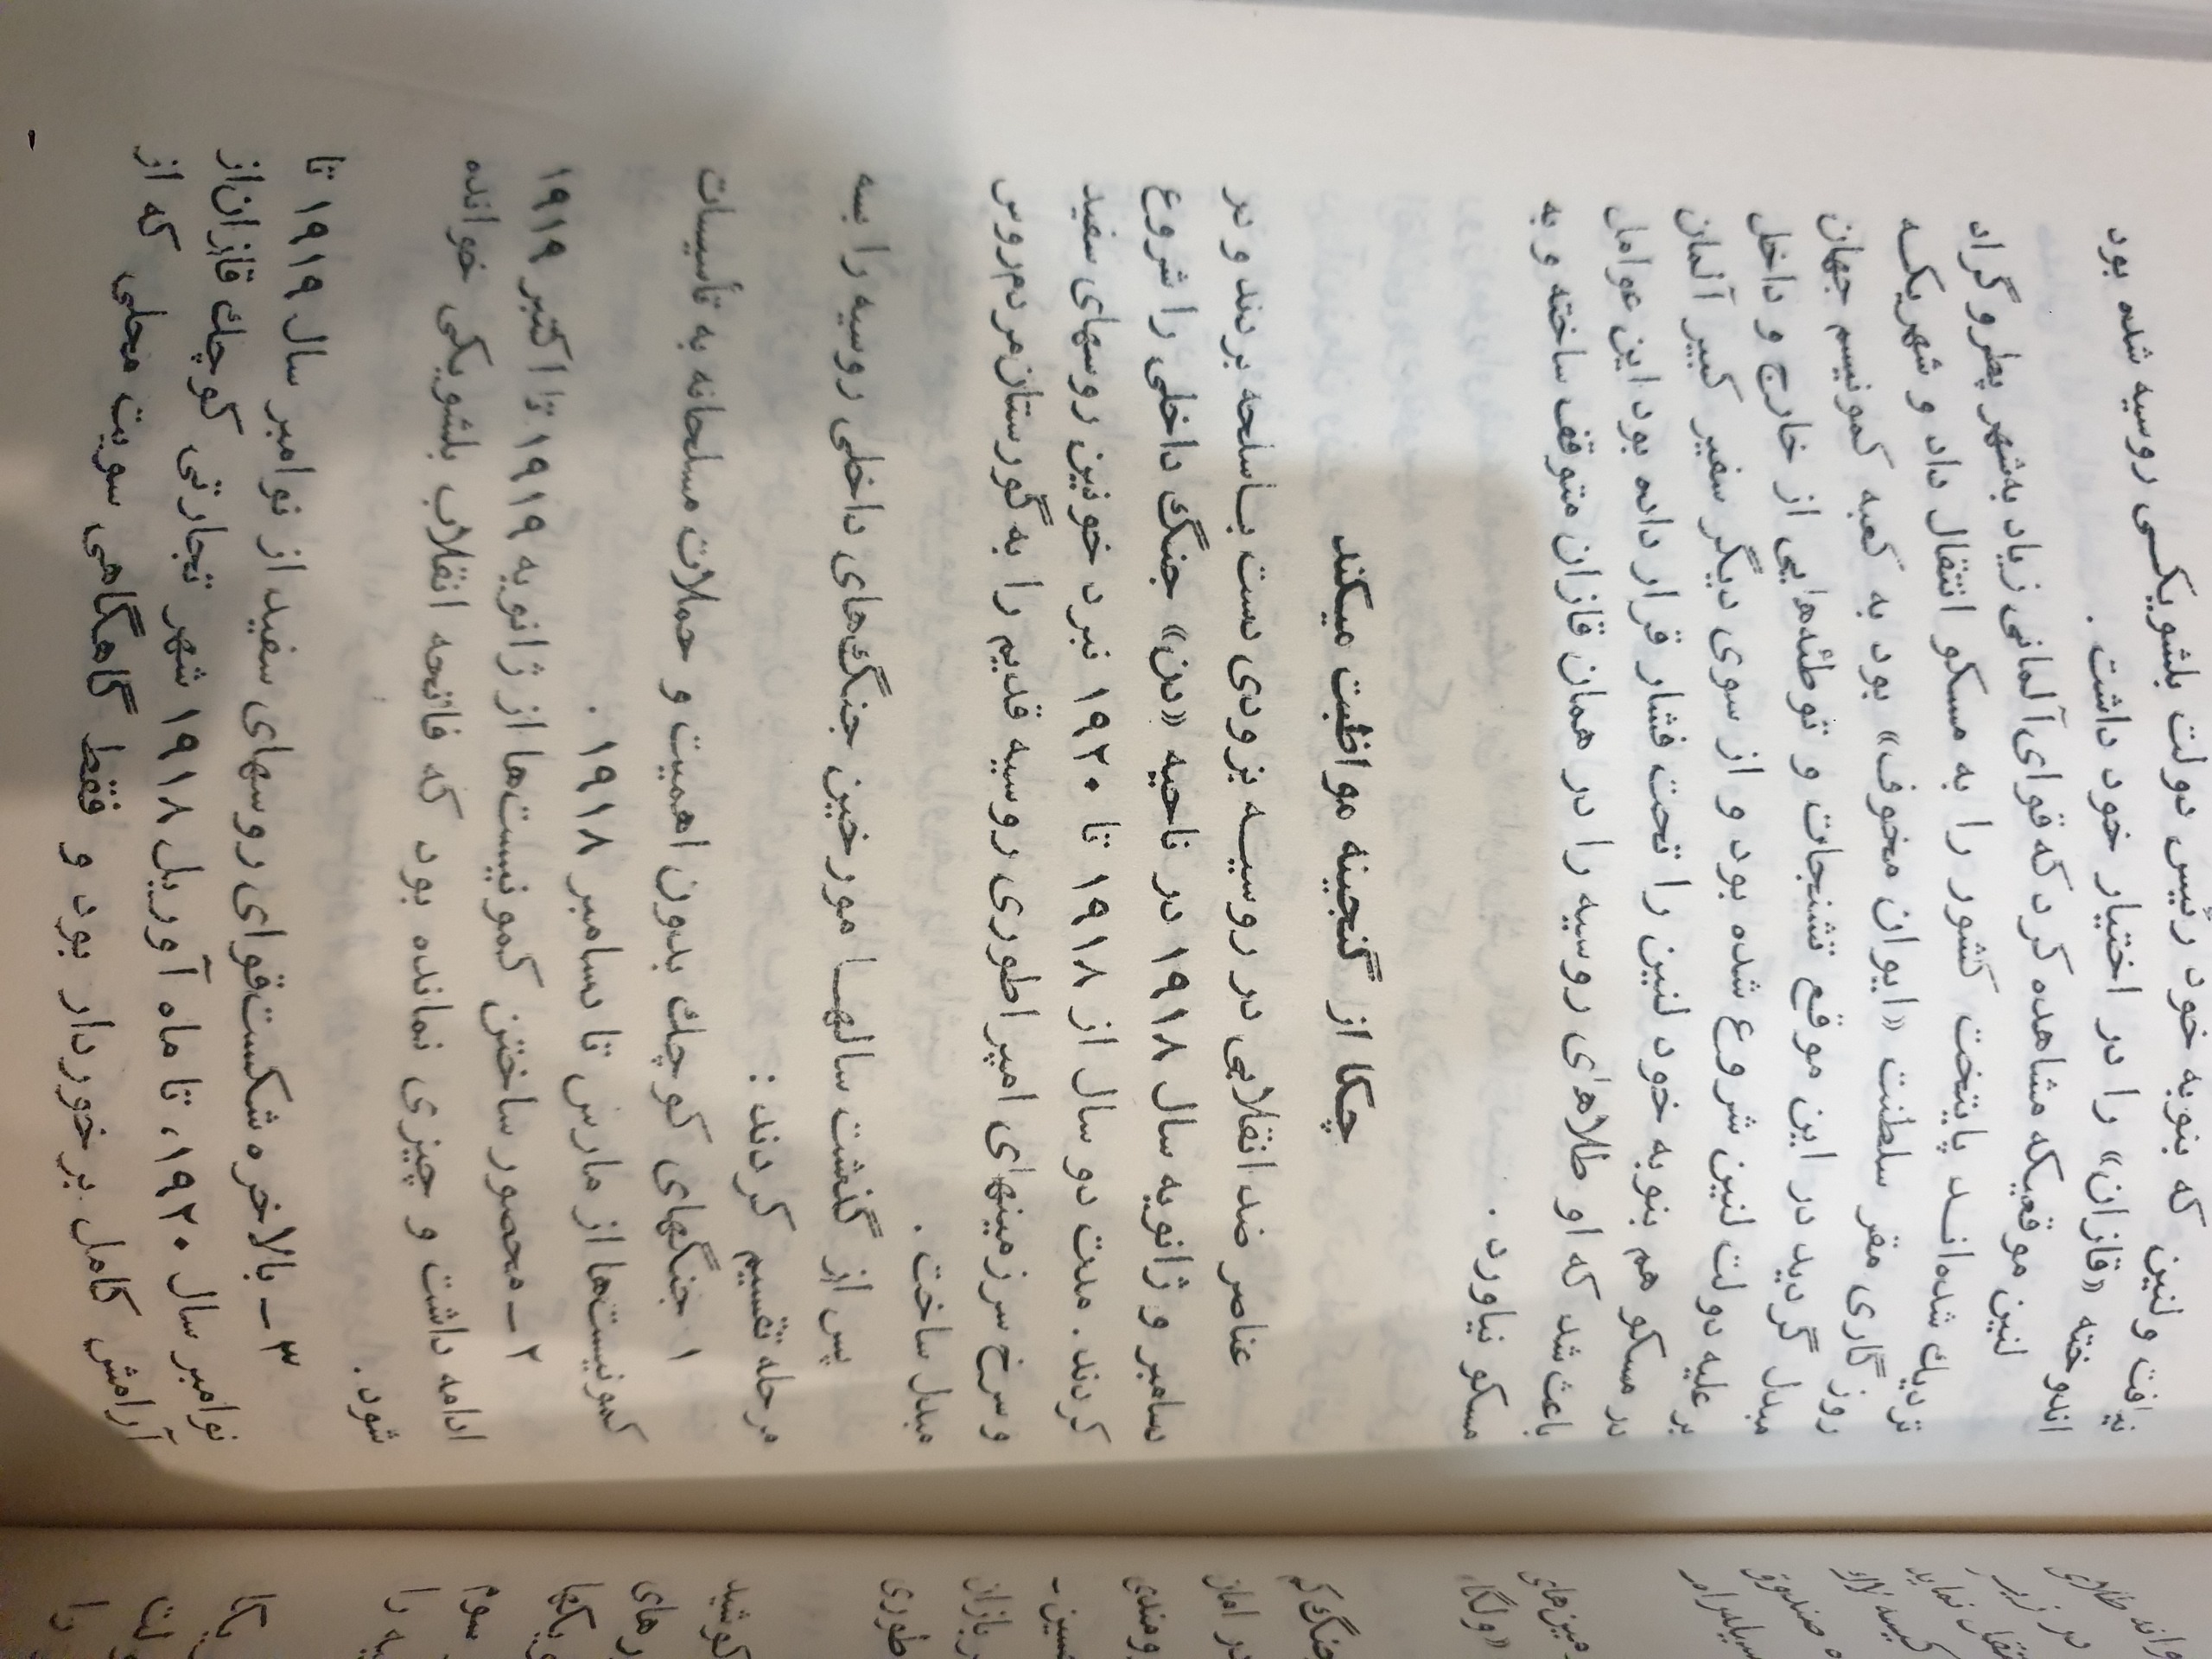 نیافت ولنین که بنوبه خود رئیس دولت بلشویکـی روسیه شده بود
اندوخته «قازان» را در اختیار خود داشت .
لنین موقعیکه مشاهده کرد که قوای آلمانی زیاد به‌شهر پطروگراد
نزدیك شده‌انــد پایتخت کشور را به مسکو انتقال داد و شهریکـه
روزگاری مقر سلطنت «ایوان مخوف» بود به کعبه کمونیسم جهان
مبدل گردید در این موقع تشنجات و توطئه‌هایی از خارج و داخل
بر علیه دولت لنین شروع شده بود و از سوی دیگر سفیر کبیر آلمان
در مسکو هم بنوبه خود لنین را تحت فشار قرار داده بود این عوامل
باعث شد که او طلاهای روسیه را در همان قازان متوقف ساخته و به
مسکو نیاورد .
چکا از گنجینه مواظبت میکند
عناصر ضد انقلابی در روسیـه بزودی دست بـاسلحه بردند و در
دسامبر و ژانویه سال ۱۹۱۸ در ناحیه «دن» جنگ داخلی را شروع
کردند. مدت دو سال از ۱۹۱۸ تا ۱۹۲۰ نبرد خونین روسهای سفید
و سرخ سرزمینهای امپراطوری روسیه قدیم را به گورستان‌مردم‌روس
مبدل ساخت .
پس از گذشت سالهــا مورخین جنگ‌های داخلی روسیه را بسه
مرحله تقسیم کردند :
۱ جنگهای کوچك بدون اهمیت و حملات مسلحانه به تأسیسات
کمونیست‌ها از مارس تا دسامبر ۱۹۱۸ .
۲ــ محصور ساختن کمونیست‌ها از ژانویه ۱۹۱۹ تا اکتبر ۱۹۱۹
ادامه داشت و چیزی نمانده بود که فاتحه انقلاب بلشویکی خوانده
شود .
۳ــ بالاخره شکست‌قوای روسهای سفید از نوامبر سال ۱۹۱۹ تا
نوامبر سال ۱۹۲۰، تا ماه آوریل ۱۹۱۸ شهر تجارتی کوچك قازان‌از
آرامش کامل برخوردار بود و فقط گاهگاهی سویت محلی که از